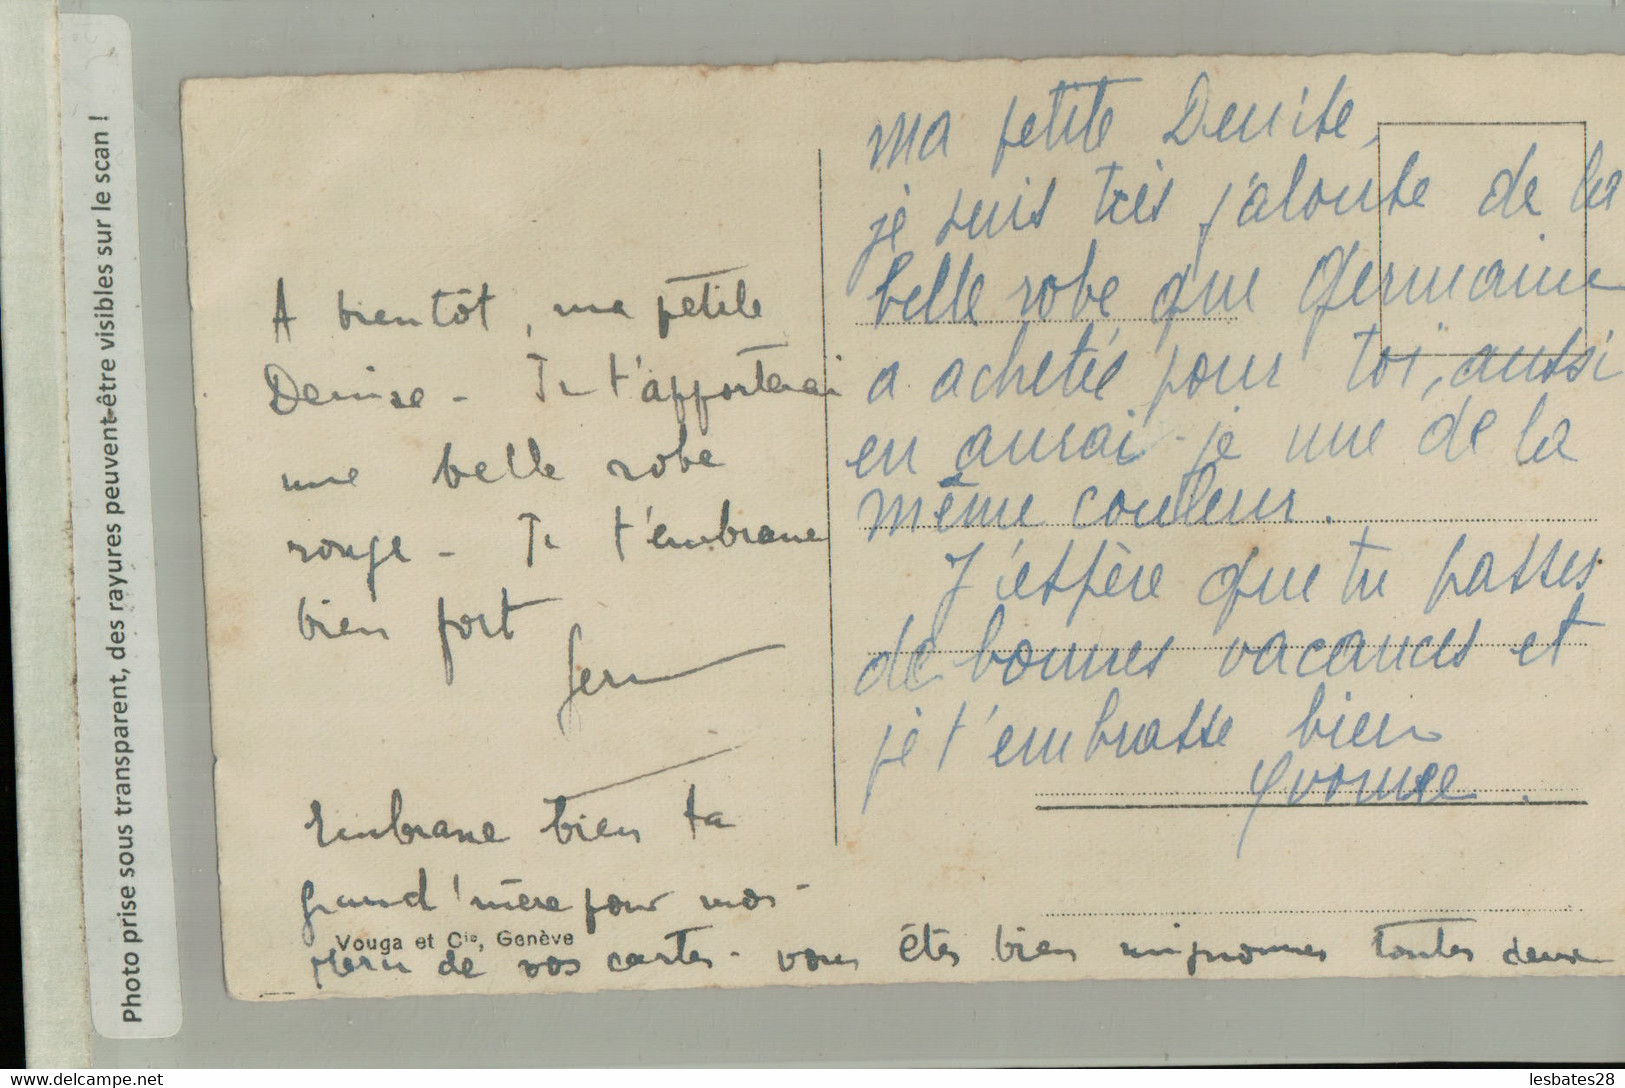 Photo prise sous transparent, des rayures peuvent-être visibles sur le scan !
A bientôt, ma petite
Denise - Je t'apporterai
une belle robe
rouge - Je t'embrasse
bien fort
Germ
Embrasse bien ta
grand'mère pour moi -
Merci de vos cartes - vous êtes bien mignonnes toutes deux
Vouga et Cie, Genève
Ma petite Denise,
je suis très jalouse de la
belle robe que Germaine
a achetée pour toi, aussi
en aurai-je une de la
même couleur.
J'espère que tu passes
de bonnes vacances et
je t'embrasse bien
Yvonne.
www.delcampe.net
lesbates28